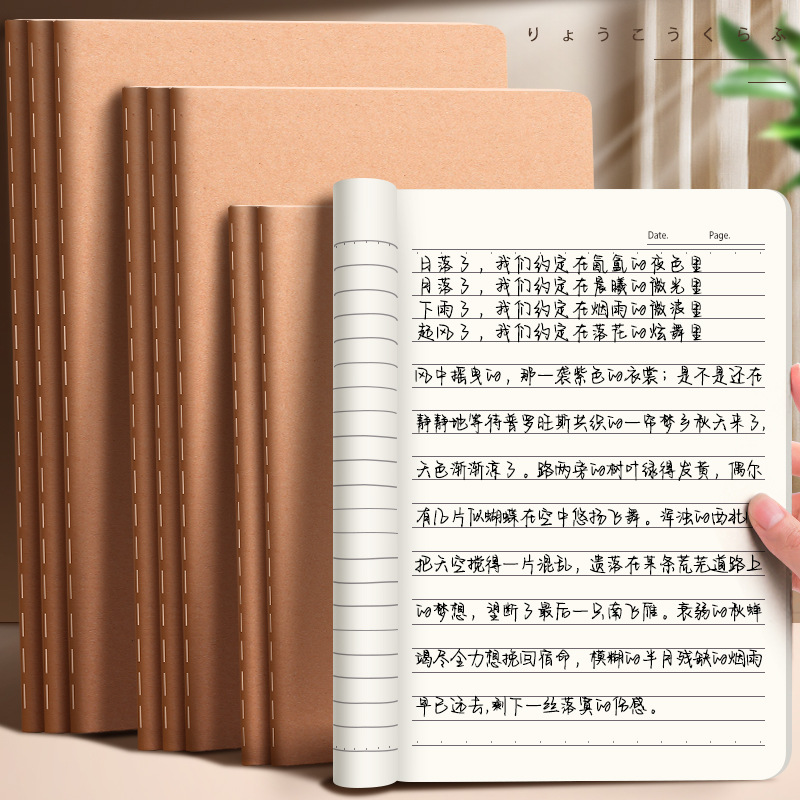 りょうこうくらふ
Date. Page.
日落了，我们约定在氤氲的夜色里
月落了，我们约定在晨曦的微光里
下雨了，我们约定在烟雨的微浪里
起风了，我们约定在落花的炫舞里
风中摇曳的，那一袭紫色的衣裳；是不是还在
静静地等待普罗旺斯共织的一帘梦乡秋天来了，
天色渐渐凉了。路两旁的树叶绿得发黄，偶尔
有几片似蝴蝶在空中悠扬飞舞。浑浊的西北
把天空搅得一片混乱，遗落在某条荒芜道路上
的梦想，望断了最后一只南飞雁。衰弱的秋蝉
竭尽全力想挽回宿命，模糊的半月残缺的烟雨
早已逝去，剩下一丝落寞的伤感。